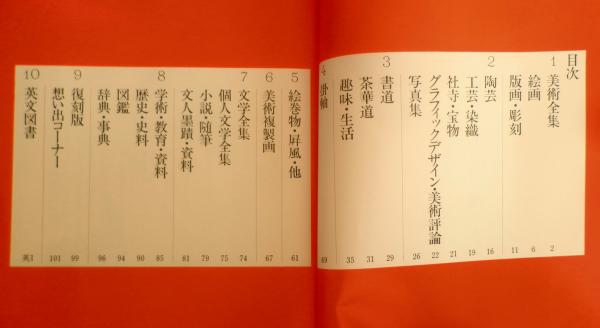 目次
1 美術全集 2
絵画 6
版画・彫刻 11
2 陶芸 16
工芸・染織 19
社寺・宝物 21
グラフィックデザイン・美術評論 22
写真集 26
3 書道 29
茶華道 31
趣味・生活 35
4 掛軸 49
5 絵巻物・屏風・他 61
6 美術複製画 67
7 文学全集 74
個人文学全集 75
小説・随筆 79
文人墨蹟・資料 81
8 学術・教育・資料 85
歴史・史料 90
図鑑 94
辞典・事典 96
9 復刻版 99
想い出コーナー 101
10 英文図書 英1